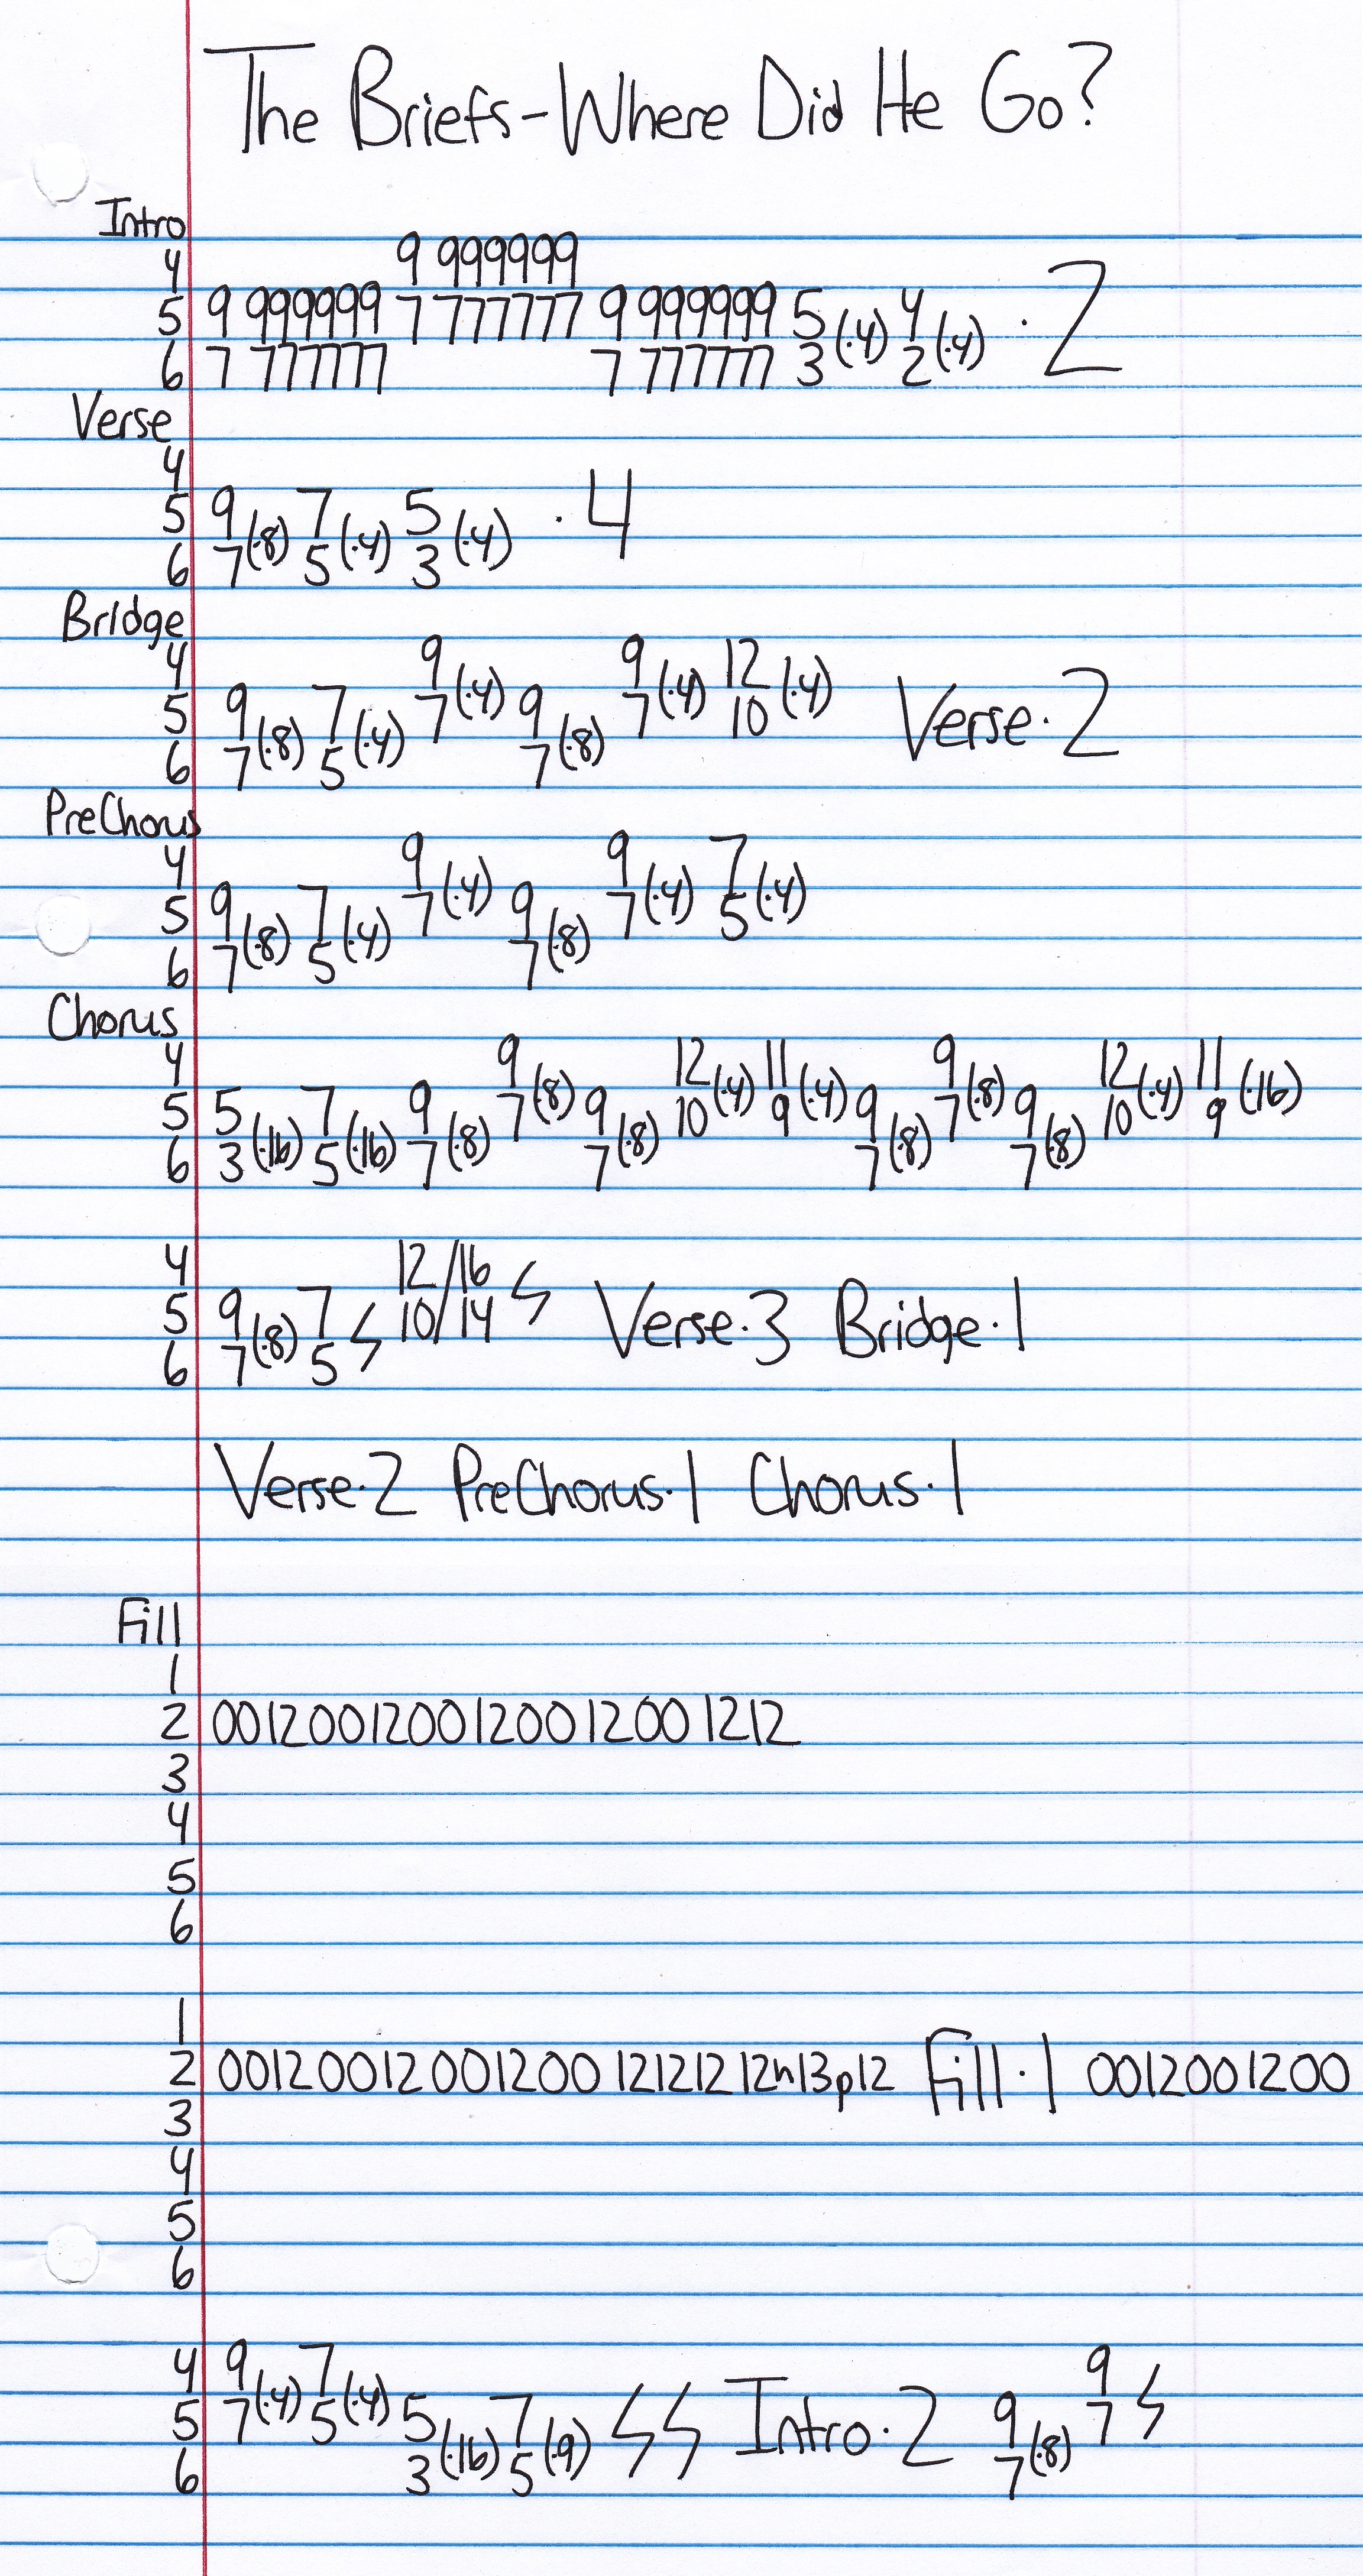 The Briefs-Where Did He Go?
Intro
4 9 999999
5 9 999999 7 777777 9 999999 5 (·4) 4 (·4) · 2
6 7 777777 7 777777 3 2
Verse
4
5 9 (·8) 7 (·4) 5 (·4) · 4
6 7 5 3
Bridge
4 9 (·4) 9 (·4) 12 (·4)
5 9 7 7 9 7 10 Verse·2
6 7 (·8) 5 (·4) 7 (·8)
PreChorus
4 9 (·4) 9 (·4) 7 (·4)
5 9 7 7 9 7 5
6 7 (·8) 5 (·4) 7 (·8)
Chorus
4 9 (·8) 12 (·4) 11 (·4) 9 (·8) 12 (·4) 11 (·16)
5 5 7 9 7 9 10 9 9 7 9 10 9
6 3 (·16) 5 (·16) 7 (·8) 7 (·8) 7 (·8) 7 (·8)
4 12/16
5 9 7 10/14 Verse·3 Bridge·1
6 7 (·8) 5
Verse·2 PreChorus·1 Chorus·1
Fill
1
2 00120012001200120012 12
3
4
5
6
1
2 00120012001200 121212 12h13p12 Fill·1 0012001200
3
4
5
6
4 9 (·4) 7 (·4) 9
5 7 5 5 7 Intro·2 9 7
6 3 (·16) 5 (·9) 7 (·8)